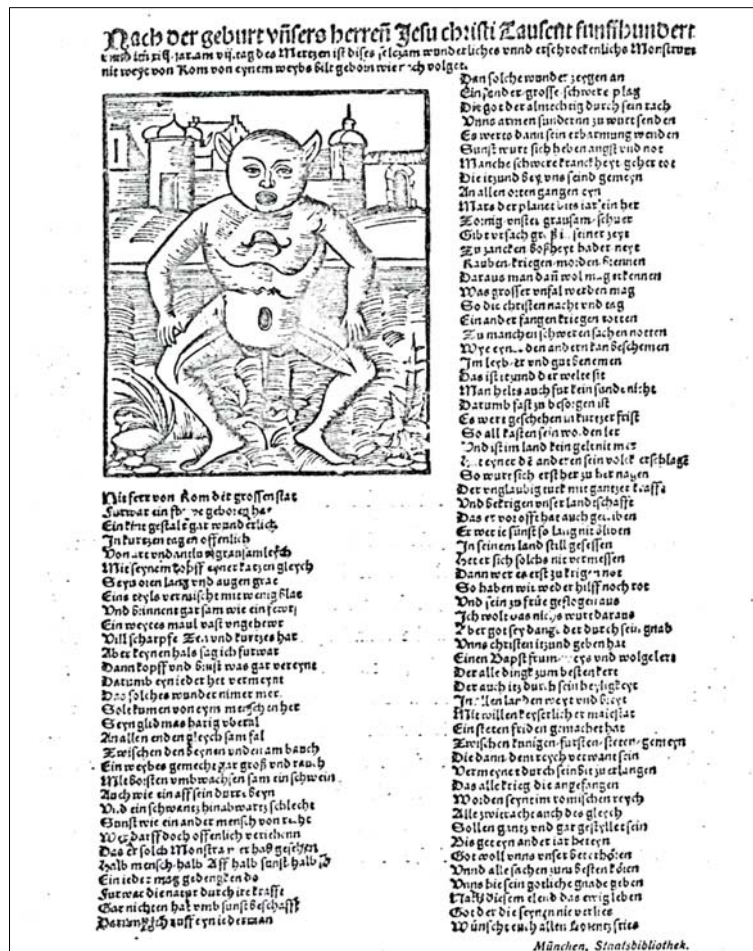 Nach der geburt vnsers herren Jesu christi Tausent funffhundert
jar am vij. tag des Mertzen ist dises selczam wunderliches vnnd erschrockenlichs Monstrum
nit weyt von Rom von eynem weybs bilt geborn wie nach volget.
Nit ferr von Rom der grossen stat
Furwar ein geboren hat
Ein gestalt gar wunderlich
In kurtzen tagen offenlich
Von art vnd antlitz gransamleich
Mit seynem kopff eyner katzen gleych
Seyn oren lang vnd augen grae
Eins teyls vermischt mit wenig blae
Vnd brinnent gar sam wie ein fewr
Ein weytes maul vast vngehewr
Vill scharpfe Zen vnd kurtzes har
Aber keynen hals sag ich furwar
Dann kopff vnd brust was gar vereynt
Darumb eyn ieder het vermeynt
Das solches wunder nimer mer
Solt kumen von eym menschen her
Seyn glid mas harig vberal
An allen enden gleych sam fal
Zwischen den beynen vnden am bauch
Ein weybes gemecht gar groß vnd rauch
Mit borsten vmbwachsen sam ein schwein
Auch wie ein aff sein durre beyn
Vnd ein schwantz hinabwartz schlecht
Sunst wie ein ander mensch von recht
doch offenlich veriehenn
Das er solch Monstrum er hab gesehen
Halb mensch halb Aff halb sunst halb
Ein ieder mag gedencken do
Furwar die natur durch ire kraffte
Gar nichten hat vmb sunst beschafft
Darumb ich auff eyn iederman
Dan solche wunder zeygen an
Ein sunder grosse schwere plag
Die got der almechtig durch sein rach
Vnns armen sundernn zu wurt senden
Es werts dann sein erbarmung wenden
Sunst wurt sich heben angst vnd not
Manche schwere kranckheyt geher tot
Die itzund bey vns seind gemeyn
An allen orten gangen eyn
Mars der planet dits iar ein her
Zornig vnstet grausam schwer
Gibt vrsach groß in seiner zeyt
Zu zancken boßheyt hader neyt
Rauben kriegen morden brennen
Daraus man dan wol mag erkennen
Was grosser vnfal werden mag
So die christen nacht vnd tag
Ein ander fangen kriegen rotten
Zu manchen schweren sachen notten
Wye eyner den andern kan beschemen
Im leyb er vnd gut benemen
Das ist itzund der welte sit
Man helts auch fur kein sunde nicht
Darumb fast zu besorgen ist
Es wert geschehen in kurtzer frist
So all kasten sein worden ler
Vnd ist im land kein gelt nit mer
eyner de anderen sein volck erschlagt
So wurt sich erst her zu her nagen
Der vnglaubig turck mit gantzer kraffte
Vnd bekrigen vnser landtschaffte
Das er vor offt hat auch getriben
Er wer ie sunst so lang nit bliben
In seinem land still gesessen
Het er sich solchs nit vermessen
Dann wer es erst zu krigen not
So haben wir weder hilff noch rot
Vnd sein zu frue geflogen aus
Ich wolt das nichs wurt daraus
Aber got sey dang der durch sein gnad
Vnns christen itzund geben hat
Einen Bapst frum weys vnd wolgelert
Der alle dingk zum besten kert
Der auch itz durch sein heyligkeyt
In allen landen weyt vnd breyt
Mit willen keyserlicher maiestat
Ein steten friden gemachet hat
Zwischen kunigen fursten steten gemeyn
Die dann dem reych verwant sein
Vermeynet durch sein bit zu erlangen
Das alle krieg die angefangen
Worden seyn im romischen reych
Alle zwitracht auch des gleych
Sollen gantz vnd gar gestyllet sein
Bis gegeyn ander iar
Got woll vnns vnser bet erhören
Vnnd alle sachen zum besten kören
Vnns hie sein gotliche gnade geben
Nach diesem elend das ewig leben
Got der die seynen nie verlies
Wünscht euch allen Lorentz fries
München, Staatsbibliothek.